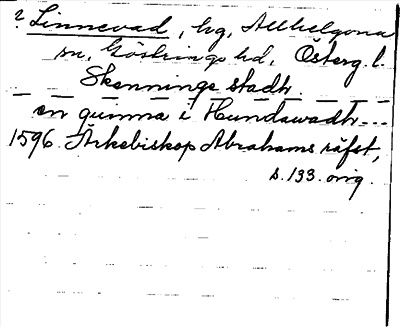 ? Linnevad, hg, Allhelgona
sn, Göstrings hd, Österg. l.
Skenninge stadh.
en quinna i Hundawadh---
1596 Ärkebiskop Abrahams räfst,
s. 133. orig.